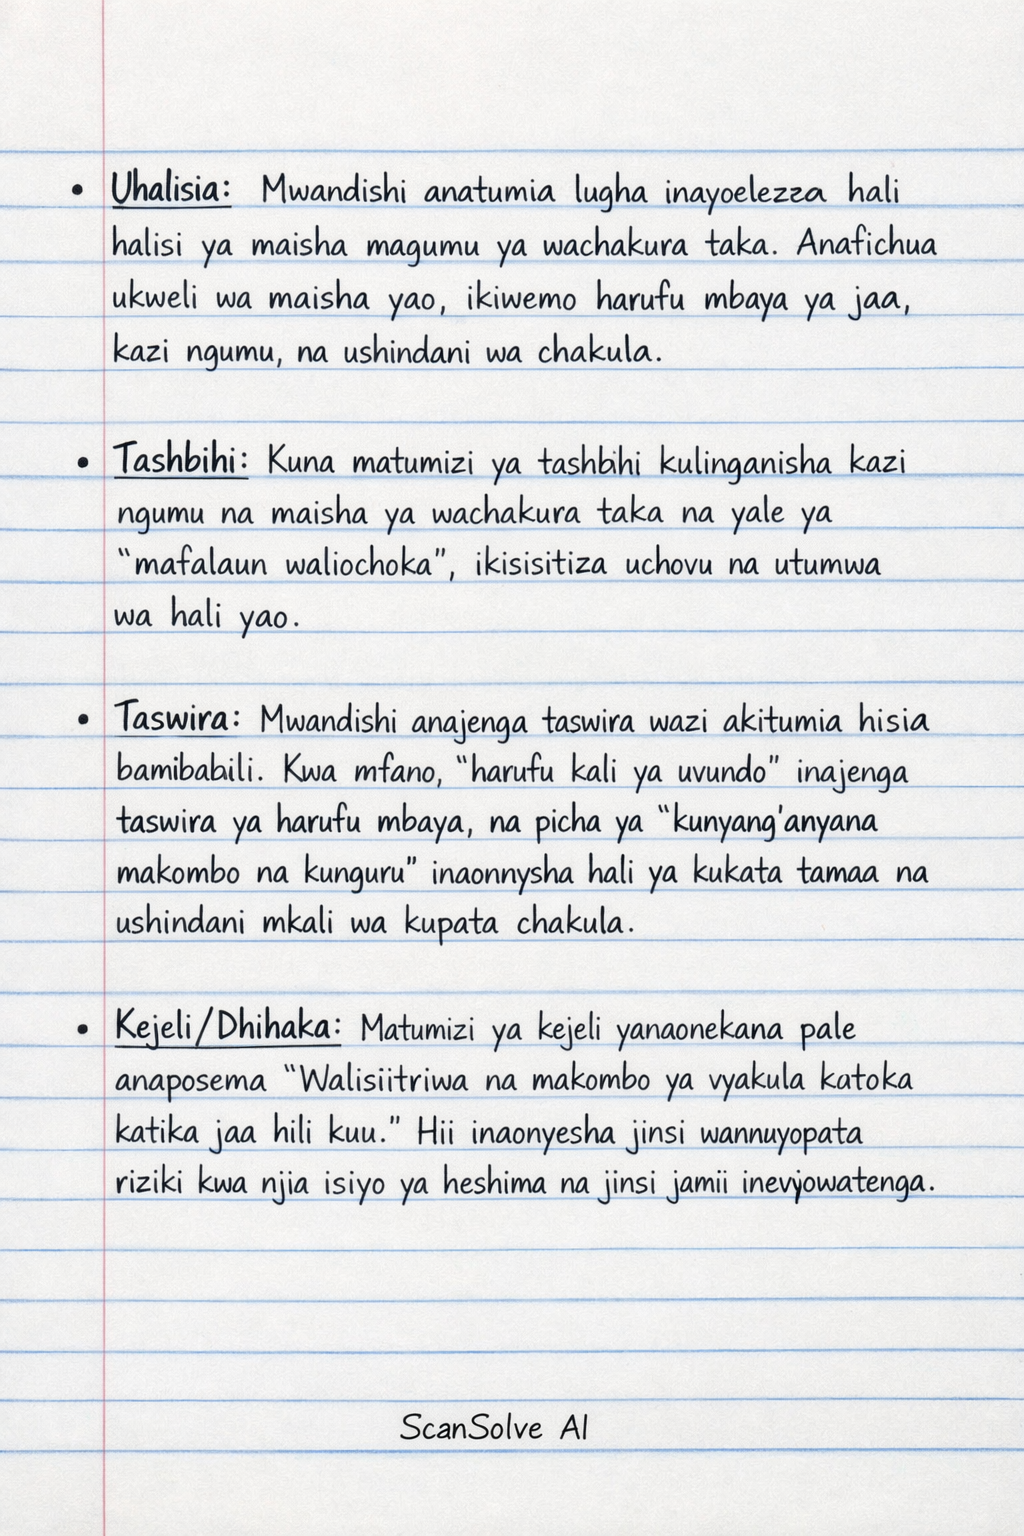 • Uhalisia: Mwandishi anatumia lugha inayoelezza hali
halisi ya maisha magumu ya wachakura taka. Anafichua
ukweli wa maisha yao, ikiwemo harufu mbaya ya jaa,
kazi ngumu, na ushindani wa chakula.
• Tashbihi: Kuna matumizi ya tashbihi kulinganisha kazi
ngumu na maisha ya wachakura taka na yale ya
“mafalaun waliochoka”, ikisisitiza uchovu na utumwa
wa hali yao.
• Taswira: Mwandishi anajenga taswira wazi akitumia hisia
bamibabili. Kwa mfano, “harufu kali ya uvundo” inajenga
taswira ya harufu mbaya, na picha ya “kunyang'anyana
makombo na kunguru” inaonnysha hali ya kukata tamaa na
ushindani mkali wa kupata chakula.
• Kejeli/Dhihaka: Matumizi ya kejeli yanaonekana pale
anaposema “Walisiitriwa na makombo ya vyakula katoka
katika jaa hili kuu.” Hii inaonyesha jinsi wannuyopata
riziki kwa njia isiyo ya heshima na jinsi jamii inevyowatenga.
ScanSolve AI